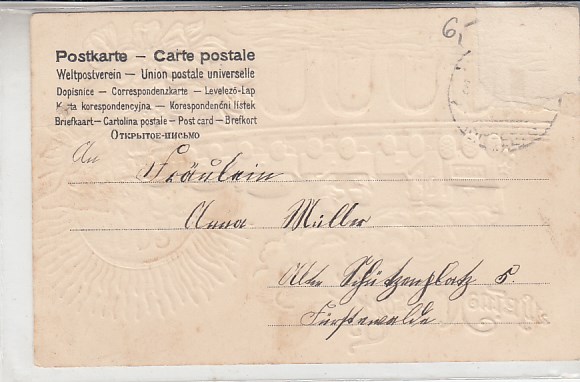 6,-
Postkarte – Carte postale
Weltpostverein – Union postale universelle
Dopisnice – Correspondenzkarte – Levelező-Lap
Karta korespondencyjna – Korespondenční lístek
Briefkaart – Cartolina postale – Post card – Brefkort
Открытое-письмо
An Fräulein
Anna Müller
Alte Schützenplatz 5.
Fürstewalde